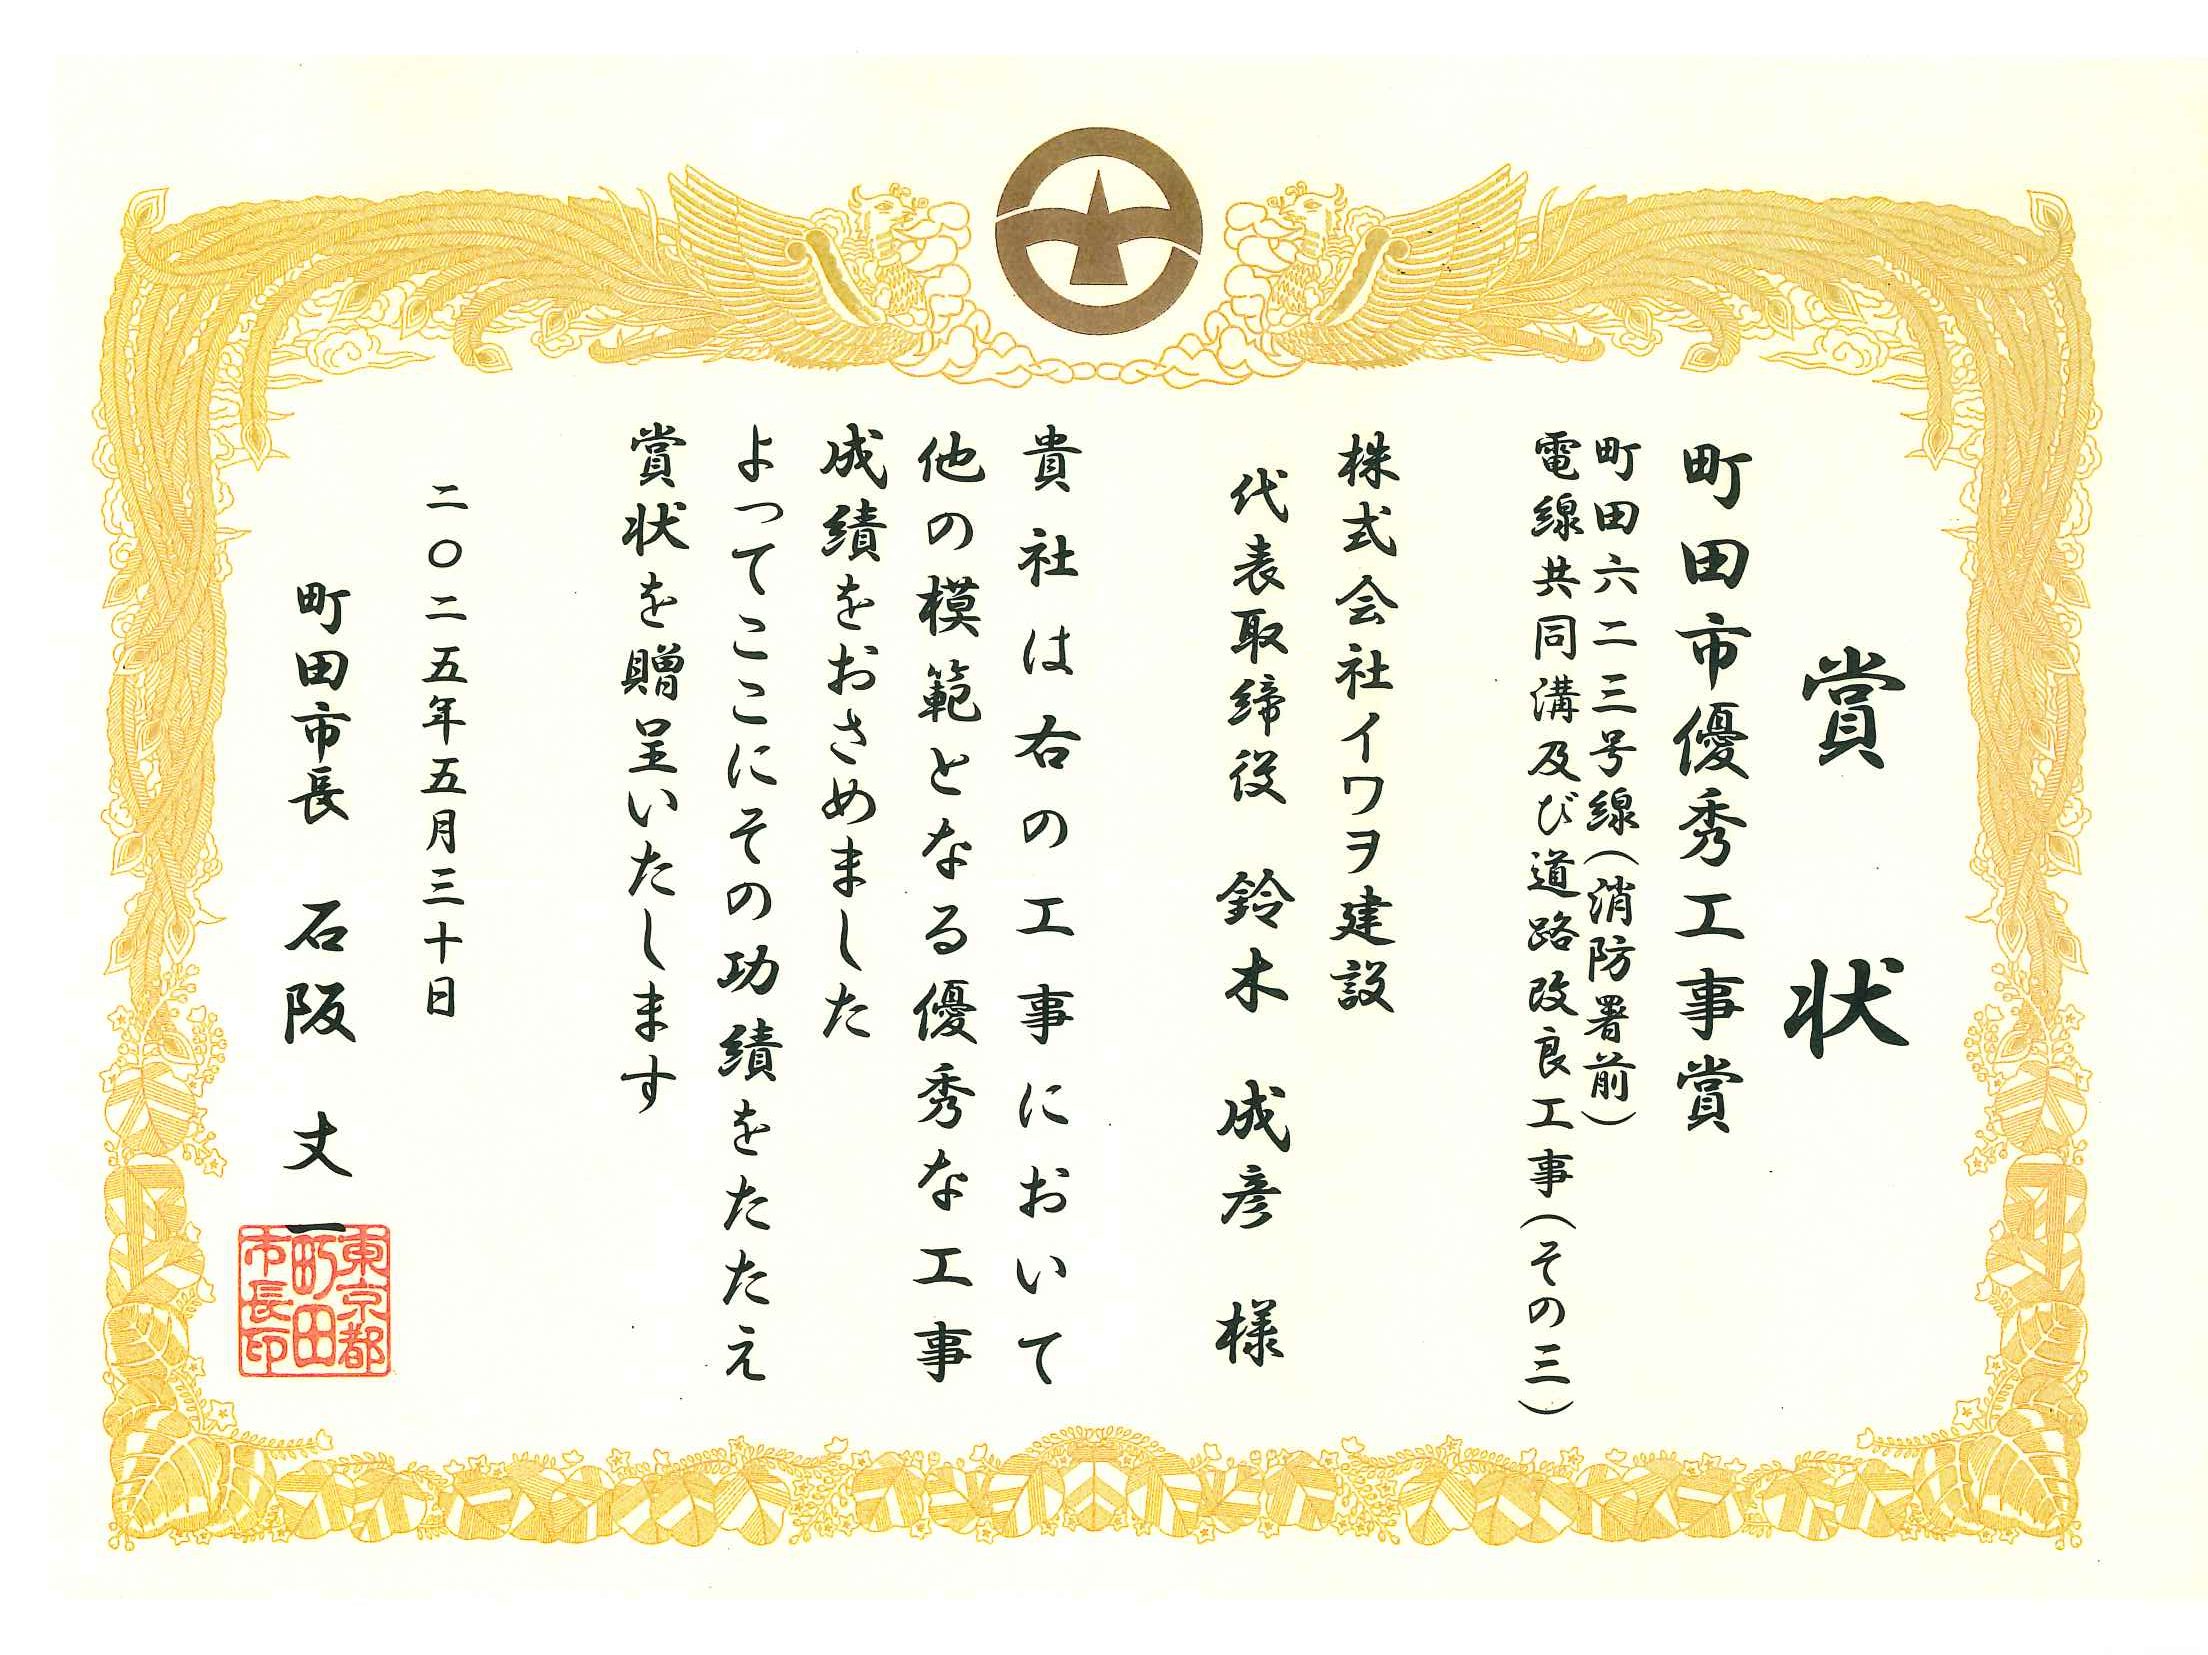 賞状
町田市優秀工事賞
町田六二三号線（消防署前）
電線共同溝及び道路改良工事（その三）
株式会社イワヲ建設
代表取締役 鈴木 成彦 様
貴社は右の工事において
他の模範となる優秀な工事
成績をおさめました
よってここにその功績をたたえ
賞状を贈呈いたします
二〇二五年五月三十日
町田市長 石阪 丈一
東京都
町田
市長印